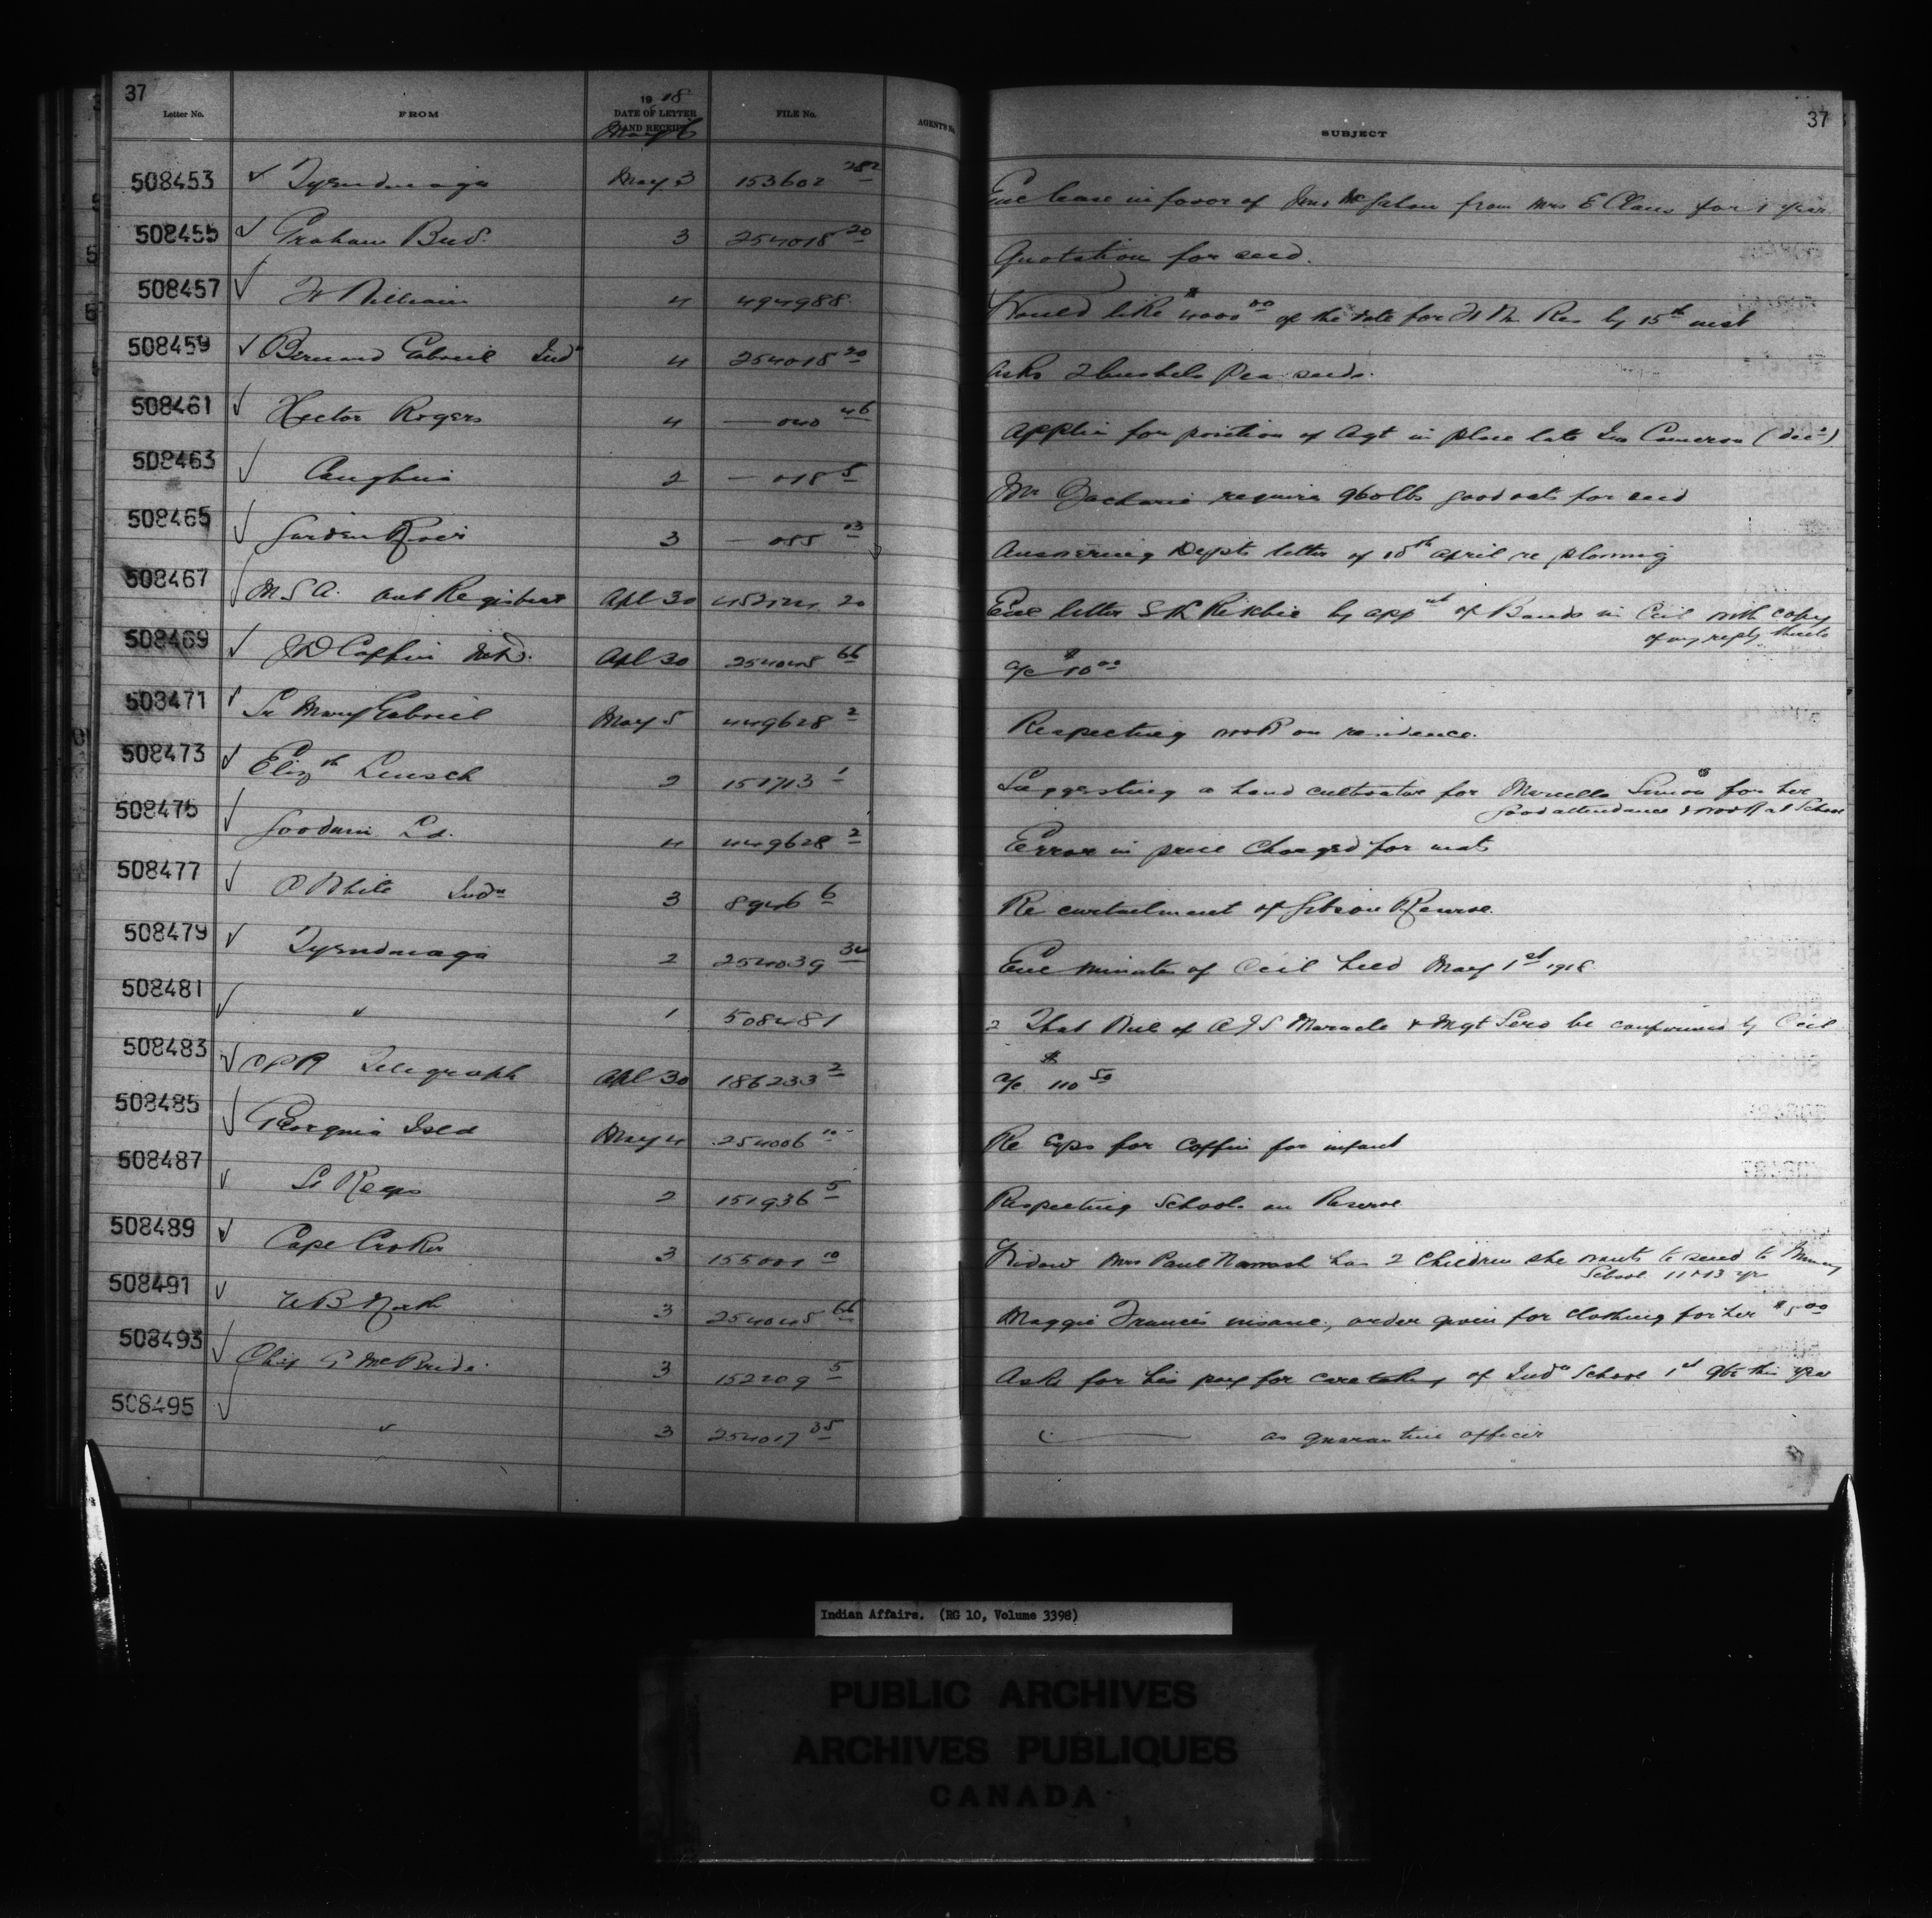 37
Letter No. FROM 1918 DATE OF LETTER AND RECEIPT FILE No. AGENT'S No. SUBJECT 37
May 6
508453 ✓ Tyendinaga May 3 153602 282 Enc lease in favor of Jno Mc from Mrs E Claus for 1 year
508455 ✓ Graham Bros. 3 254018 20 Quotation for seed.
508457 ✓ Ft William 4 494988 Would like $4000 00 of the for Ft Wm Res by 15th inst
508459 ✓ Bernard Gabriel Indn 4 254018 20 Asks 2 bushels Pea seeds.
508461 ✓ Hector Rogers 4 — 040 46 Applic for position of Agt in place late Jno Cameron (decd)
508463 ✓ Caughna 2 — 018 5 Mr Zacharie requires 960 lbs good oats for seed
508465 ✓ Garden River 3 — 055 03 Answering Depts letter of 18th April re plowing
508467 ✓ M S A. Registrar Apl 30 452124 20 Enc letter by appnt of Bands in Ccil with copy
of my reply thereto
508469 ✓ J D Coffin Apl 30 254045 66 a/c $10 00
508471 ✓ Sr Mary Gabriel May 5 449628 2 Respecting work on residence.
508473 ✓ Elizth Leusch 2 151713 1 Suggesting a hand cultivator for Marcella Simon for her
good attendance & work at School
508475 ✓ Goodwin Ld. 4 449628 2 Error in price charged for mats
508477 ✓ White Indn 3 8946 6 Re curtailment of Gibson Reserve.
508479 ✓ Tyendinaga 2 254039 34 Enc minutes of Ccil held May 1st 1918
508481 ✓ " 1 508481 2 That Will of A J S Maracle & Mgt Sero be confirmed by Ccil
508483 ✓ C P R Telegraph Apl 30 186233 2 a/c $110 50
508485 ✓ Georgina Isld May 4 254006 10 Re Exps for coffin for infant
508487 ✓ St Regis 2 151936 5 Respecting Schools on Reserve
508489 ✓ Cape Croker 3 155001 10 Widow Mrs Paul Nawash has 2 children she wants to send to Muncey
School 11 & 13 yrs
508491 ✓ W B North 3 254045 66 Maggie Francis insane, order given for clothing for her $5 00
508493 ✓ Chief McBride 3 152209 5 Asks for his pay for caretaking of Indn School 1st qtr this year
508495 ✓ " 3 254017 35 " — as quarantine officer
Indian Affairs. (RG 10, Volume 3398)
PUBLIC ARCHIVES
ARCHIVES PUBLIQUES
CANADA